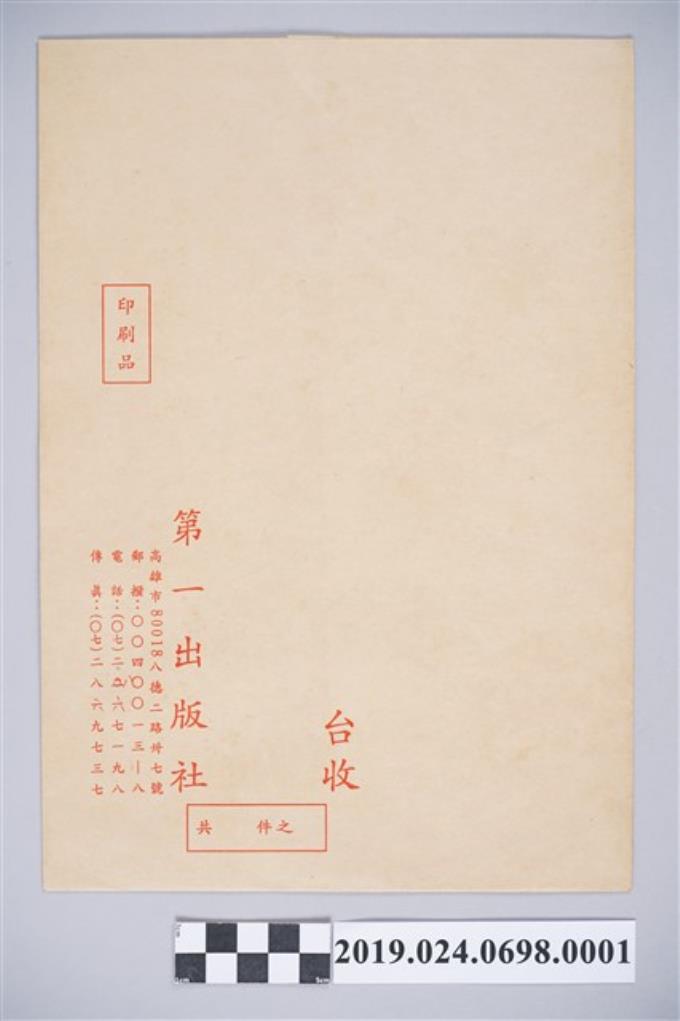 台收
第一出版社
高雄市80018八德二路卅七號
郵撥：〇〇四〇〇一三—八
電話：(〇七)二六七一九八
傳眞：(〇七)二八六九七三七
印刷品
共　件之
2019.024.0698.0001
0cm
5cm